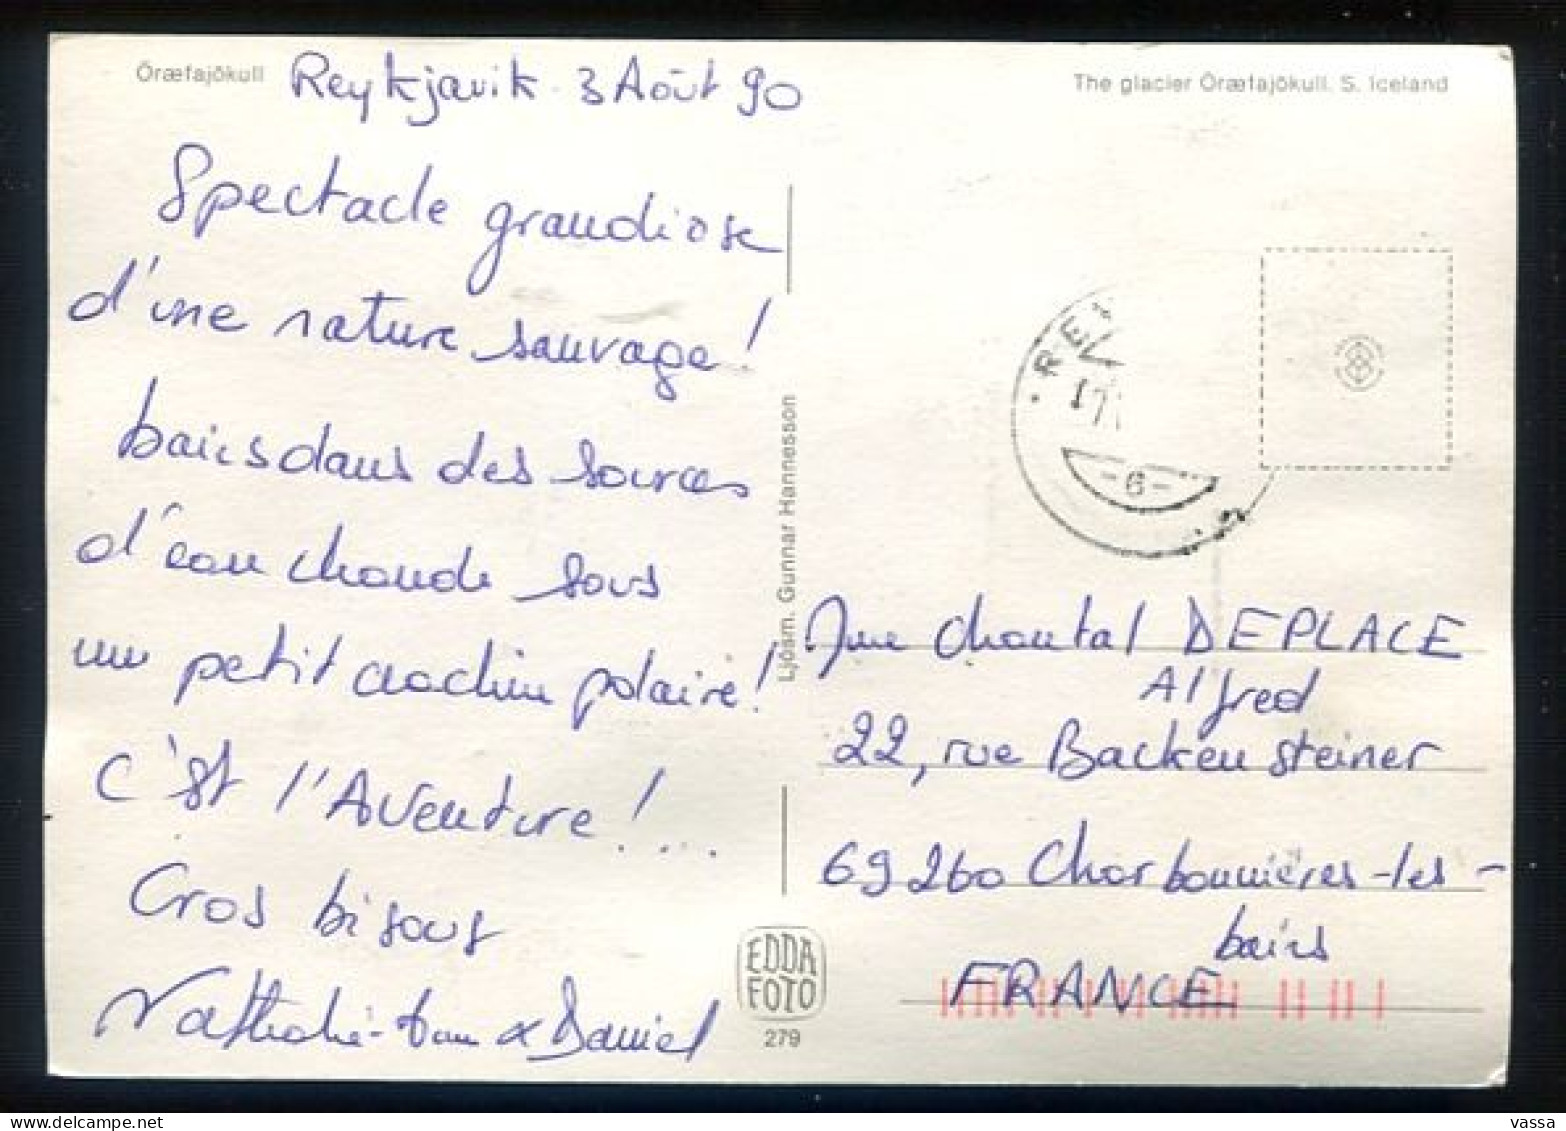 Öræfajökull
Reykjavik. 3 Août 90
The glacier Öræfajökull. S. Iceland
Spectacle grandiose
d'une nature sauvage!
bains dans des sources
d'eau chaude sous
un petit crachin polaire!
C'est l'Aventure!...
Gros bisous
Nathalie- & Daniel
Ljósm. Gunnar Hannesson
EDDA
FOTO
279
REY
17
-6-
Mme Chantal DEPLACE
Alfred
22, rue Backensteiner
69260 Charbonnières-les-
bains
FRANCE
vassa